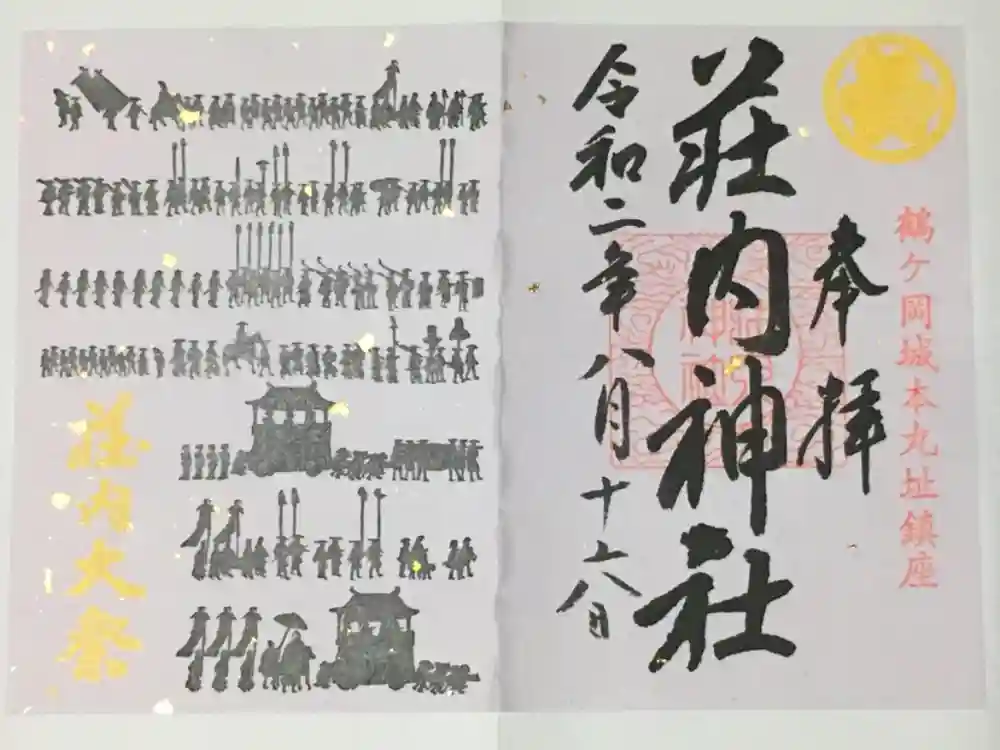 鶴ケ岡城本丸址鎮座
奉拝
荘内神社
令和二年八月十六日
荘内大祭